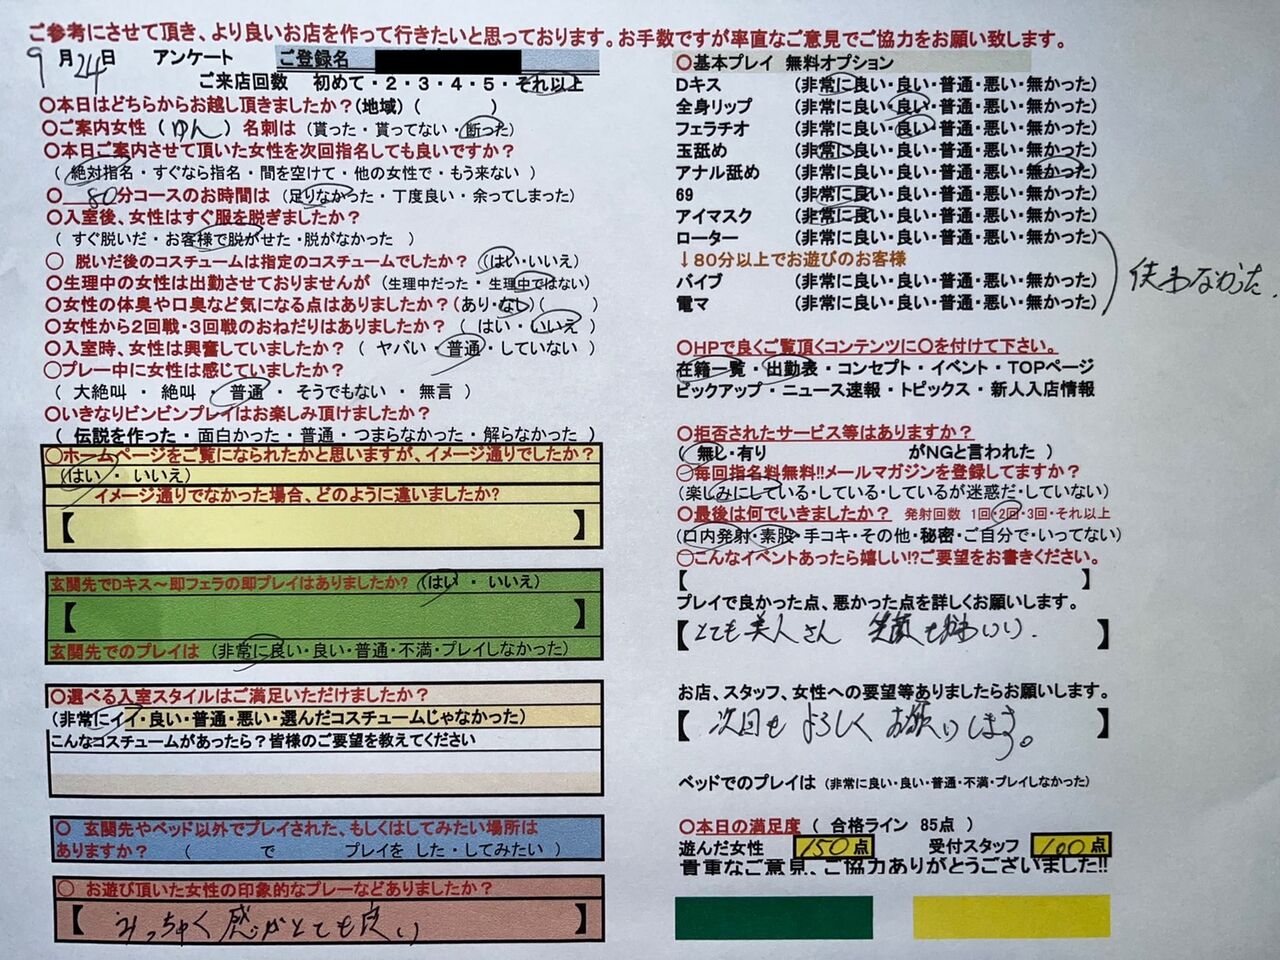 ご参考にさせて頂き、より良いお店を作って行きたいと思っております。お手数ですが率直なご意見でご協力をお願い致します。
9月24日 アンケート ご登録名
ご来店回数 初めて・2・3・4・5・それ以上
〇本日はどちらからお越し頂きましたか？(地域) ( )
〇ご案内女性 ( ゆん ) 名刺は (貰った・貰ってない・断った)
〇本日ご案内させて頂いた女性を次回指名しても良いですか？
( 絶対指名・すぐなら指名・間を空けて・他の女性で・もう来ない )
〇 80分コースのお時間は (足りなかった・丁度良い・余ってしまった)
〇入室後、女性はすぐ服を脱ぎましたか？
( すぐ脱いだ・お客様で脱がせた・脱がなかった )
〇 脱いだ後のコスチュームは指定のコスチュームでしたか？ (はい・いいえ)
〇生理中の女性は出勤させておりませんが (生理中だった・生理中ではない)
〇女性の体臭や口臭など気になる点はありますか？(あり・なし)( )
〇女性から2回戦・3回戦のおねだりはありましたか？ ( はい・いいえ )
〇入室時、女性は興奮していましたか？ ( ヤバい・普通・していない )
〇プレー中に女性は感じていましたか？
( 大絶叫・絶叫・普通・そうでもない・無言 )
〇いきなりビンビンプレイはお楽しみ頂けましたか？
( 伝説を作った・面白かった・普通・つまらなかった・解らなかった )
〇ホームページをご覧になられたかと思いますが、イメージ通りでしたか？
(はい・いいえ)
イメージ通りでなかった場合、どのように違いましたか?
【 】
玄関先でDキス～即フェラの即プレイはありましたか? (はい・いいえ)
【 】
玄関先でのプレイは (非常に良い・良い・普通・不満・プレイしなかった)
〇選べる入室スタイルはご満足いただけましたか？
(非常にイイ・良い・普通・悪い・選んだコスチュームじゃなかった)
こんなコスチュームがあったら？皆様のご要望を教えてください
〇 玄関先やベッド以外でプレイされた、もしくはしてみたい場所は
ありますか？ ( で プレイを した・してみたい )
〇 お遊び頂いた女性の印象的なプレーなどありましたか？
【 みっちゃく感がとても良い 】
〇基本プレイ 無料オプション
Dキス (非常に良い・良い・普通・悪い・無かった)
全身リップ (非常に良い・良い・普通・悪い・無かった)
フェラチオ (非常に良い・良い・普通・悪い・無かった)
玉舐め (非常に良い・良い・普通・悪い・無かった)
アナル舐め (非常に良い・良い・普通・悪い・無かった)
69 (非常に良い・良い・普通・悪い・無かった)
アイマスク (非常に良い・良い・普通・悪い・無かった)
ローター (非常に良い・良い・普通・悪い・無かった)
↓80分以上でお遊びのお客様
バイブ (非常に良い・良い・普通・悪い・無かった)
電マ (非常に良い・良い・普通・悪い・無かった)
使わなかった.
〇HPで良くご覧頂くコンテンツに〇を付けて下さい。
在籍一覧・出勤表・コンセプト・イベント・TOPページ
ピックアップ・ニュース速報・トピックス・新人入店情報
〇拒否されたサービス等はありますか？
( 無し・有り がNGと言われた )
〇毎回指名料無料!!メールマガジンを登録してますか？
(楽しみにしている・している・しているが迷惑だ・していない)
〇最後は何でいきましたか？ 発射回数 1回・2回・3回・それ以上
(口内発射・素股・手コキ・その他・秘密・ご自分で・いってない)
〇こんなイベントあったら嬉しい!?ご要望をお書きください。
【 】
プレイで良かった点、悪かった点を詳しくお願いします。
【 とても美人さん 笑顔もかわいい. 】
お店、スタッフ、女性への要望等ありましたらお願いします。
【 次回も よろしく お願いします。 】
ベッドでのプレイは (非常に良い・良い・普通・不満・プレイしなかった)
〇本日の満足度 ( 合格ライン 85点 )
遊んだ女性 150点 受付スタッフ 100点
貴重なご意見、ご協力ありがとうございました!!